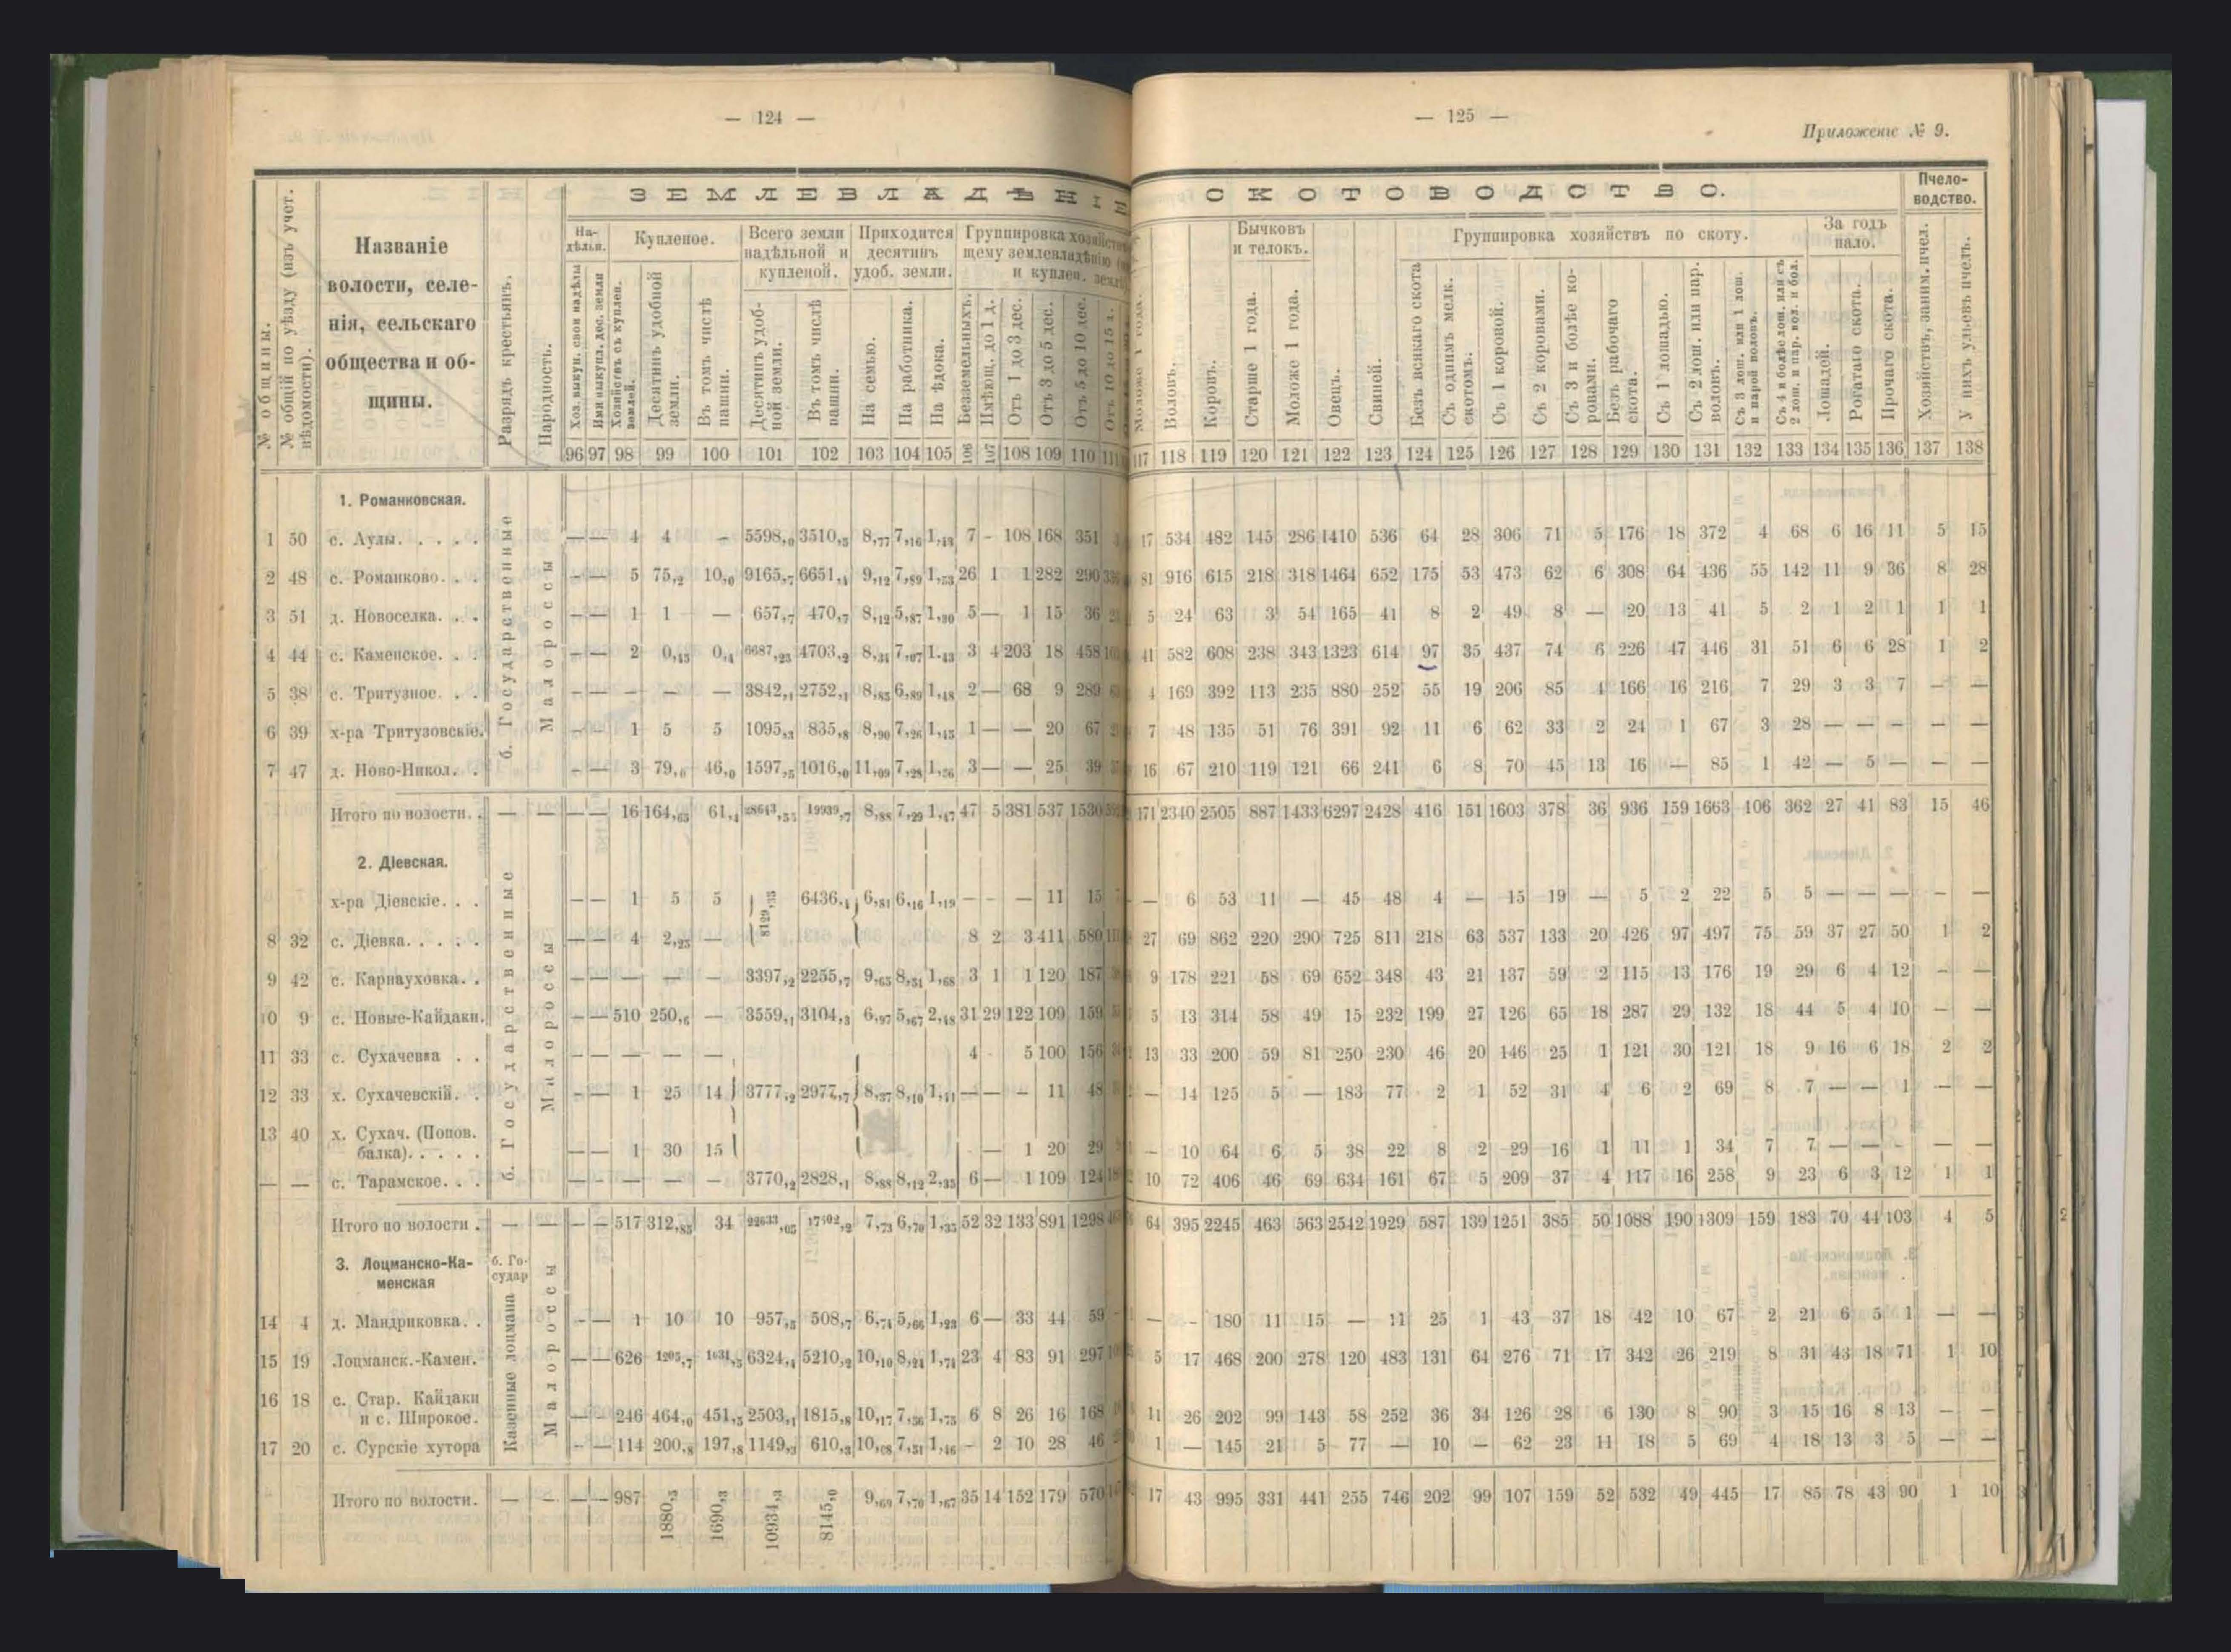 — 124 —
ЗЕМЛЕВЛАДѢНІЕ
№ общины.
№ общій по уѣзду (изъ учет. вѣдомости).
Названіе
волости, селе-
нія, сельскаго
общества и об-
щины.
Разрядъ крестьянъ.
Народность.
На-
дѣльн.
Купленое.
Всего земли
надѣльной и
купленой.
Приходится
десятинъ
удоб. земли.
Группировка хозяйствъ
щему землевладѣнію
и куплен. земл
Хоз. выкуп. свои надѣлы
Ими выкупл. дес. земли
Хозяйствъ съ куплен. землей.
Десятинъ удобной земли.
Въ томъ числѣ пашни.
Десятинъ удоб-ной земли.
Въ томъ числѣ пашни.
На семью.
На работника.
На ѣдока.
Безземельныхъ.
Имѣющ. до 1 д.
Отъ 1 до 3 дес.
Отъ 3 до 5 дес.
Отъ 5 до 10 дес.
Отъ 10 до 15 д.
96 97 98 99 100 101 102 103 104 105 106 107 108 109 110 111
1. Романковская.
б. Государственные
Малороссы
1 50 с. Аулы. . . . . — — 4 4 — 5598,0 3510,5 8,77 7,16 1,43 7 - 108 168 351
2 48 с. Романково. . . - — 5 75,2 10,0 9165,7 6651,4 9,12 7,89 1,53 26 1 1 282 290
3 51 д. Новоселка. . . — — 1 1 — 657,7 470,7 8,12 5,87 1,30 5 — 1 15 36
4 44 с. Каменское. . . - — 2 0,43 0,4 6687,25 4703,2 8,34 7,07 1,43 3 4 203 18 458
5 38 с. Тритузное. . . - — - — — 3842,1 2752,1 8,85 6,89 1,48 2 — 68 9 289
6 39 х-ра Тритузовскіе. - - 1 5 5 1095,3 835,8 8,90 7,26 1,45 1 — — 20 67
7 47 д. Ново-Никол. . - — 3 79,0 46,0 1597,5 1016,0 11,09 7,28 1,56 3 — — 25 39
Итого по волости. . — — — — 16 164,63 61,4 28643,55 19939,7 8,88 7,29 1,47 47 5 381 537 1530
2. Діевская.
б. Государственные
Малороссы
х-ра Діевскіе. . . — — 1 5 5 8129,35 6436,4 6,81 6,16 1,19 — - — 11 15
8 32 с. Діевка. . . . . — — 4 2,23 — 8 2 3 411 580
9 42 с. Карнауховка. . — — — — — 3397,2 2255,7 9,65 8,51 1,68 3 1 1 120 187
10 9 с. Новые-Кайдаки. - — 510 250,6 — 3559,1 3104,3 6,97 5,67 2,48 31 29 122 109 159
11 33 с. Сухачевка . . — — — — — 4 - 5 100 156
12 33 х. Сухачевскій. . - — 1 25 14 3777,2 2977,7 8,37 8,10 1,41 — — - 11 48
13 40 х. Сухач. (Попов.
балка). . . . . — — 1 30 15 - — 1 20 29
— — с. Тарамское. . . - — — — — 3770,2 2828,1 8,88 8,12 2,35 6 — 1 109 124
Итого по волости . — — — — 517 312,85 34 22633,05 17602,2 7,73 6,70 1,35 52 32 133 891 1298
3. Лоцманско-Ка-
менская
б. Го-
судар
Казенные лоцмана
Малороссы
14 4 д. Мандриковка. . - — 1 10 10 957,5 508,7 6,74 5,66 1,23 6 — 33 44 59
15 19 Лоцманск.-Камен. — — 626 1205,7 1031,5 6324,4 5210,2 10,10 8,24 1,74 23 4 83 91 297
16 18 с. Стар. Кайдаки
и с. Широкое. — - 246 464,0 451,5 2503,1 1815,8 10,17 7,36 1,75 6 8 26 16 168
17 20 с. Сурскіе хутора - — 114 200,8 197,8 1149,3 610,3 10,08 7,31 1,46 - 2 10 28 46
Итого по волости. — — — — 987 1880,5 1690,3 10934,3 8145,0 9,69 7,70 1,67 35 14 152 179 570
— 125 —
Приложеніе № 9.
СКОТОВОДСТВО.
Пчело-
водство.
Бычковъ
и телокъ.
Группировка хозяйствъ по скоту.
За годъ
пало.
Моложе 1 года.
Воловъ.
Коровъ.
Старше 1 года.
Моложе 1 года.
Овецъ.
Свиней.
Безъ всякаго скота
Съ однимъ мелк. скотомъ.
Съ 1 коровой.
Съ 2 коровами.
Съ 3 и болѣе ко-ровами.
Безъ рабочаго скота.
Съ 1 лошадью.
Съ 2 лош. или пар. воловъ.
Съ 3 лош. или 1 лош. и парой воловъ.
Съ 4 и болѣе лош. или съ 2 лош. и пар. вол. и бол.
Лошадей.
Рогатаго скота.
Прочаго скота.
Хозяйствъ, заним. пчел.
У нихъ ульевъ пчелъ.
117 118 119 120 121 122 123 124 125 126 127 128 129 130 131 132 133 134 135 136 137 138
17 534 482 145 286 1410 536 64 28 306 71 5 176 18 372 4 68 6 16 11 5 15
81 916 615 218 318 1464 652 175 53 473 62 6 308 64 436 55 142 11 9 36 8 28
5 24 63 3 54 165 41 8 2 49 8 — 20 13 41 5 2 1 2 1 1 1
41 582 608 238 343 1323 614 97 35 437 74 6 226 47 446 31 51 6 6 28 1 2
4 169 392 113 235 880 252 55 19 206 85 1 166 16 216 7 29 3 3 7 — —
7 48 135 51 76 391 92 11 6 62 33 2 24 1 67 3 28 — — — — —
16 67 210 119 121 66 241 6 8 70 45 13 16 — 85 1 42 — 5 — — —
171 2340 2505 887 1433 6297 2428 416 151 1603 378 36 936 159 1663 106 362 27 41 83 15 46
— 6 53 11 — 45 48 4 — 15 19 — 5 2 22 5 5 — — — — —
27 69 862 220 290 725 811 218 63 537 133 20 426 97 497 75 59 37 27 50 1 2
9 178 221 58 69 652 348 43 21 137 59 2 115 13 176 19 29 6 4 12 - —
5 13 314 58 49 15 232 199 27 126 65 18 287 29 132 18 44 5 4 10 — —
13 33 200 59 81 250 230 46 20 146 25 1 121 30 121 18 9 16 6 18 2 2
— 14 125 5 — 183 77 2 1 52 31 4 6 2 69 8 7 — — 1 — —
— 10 64 6 5 38 22 8 2 29 16 1 11 1 34 7 7 — — - — —
10 72 406 46 69 634 161 67 5 209 37 4 117 16 258 9 23 6 3 12 1 1
64 395 2245 463 563 2542 1929 587 139 1251 385 50 1088 190 1309 159 183 70 44 103 4 5
— - 180 11 15 — 11 25 1 43 37 18 42 10 67 2 21 6 5 1 — —
5 17 468 200 278 120 483 131 64 276 71 17 342 26 219 8 31 43 18 71 1 10
11 26 202 99 143 58 252 36 34 126 28 6 130 8 90 3 15 16 8 13 — —
1 — 145 21 5 77 — 10 — 62 23 11 18 5 69 4 18 13 3 5 — —
17 43 995 331 441 255 746 202 99 107 159 52 532 49 445 17 85 78 43 90 1 10